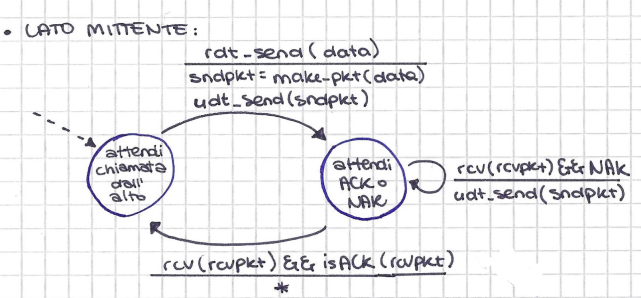 • LATO MITTENTE:
rdt_send(data)
sndpkt = make_pkt(data)
udt_send(sndpkt)
attendi
chiamata
dall'
alto
attendi
ACK o
NAK
rcv(rcvpkt) && NAK
udt_send(sndpkt)
rcv(rcvpkt) && isACK(rcvpkt)
*